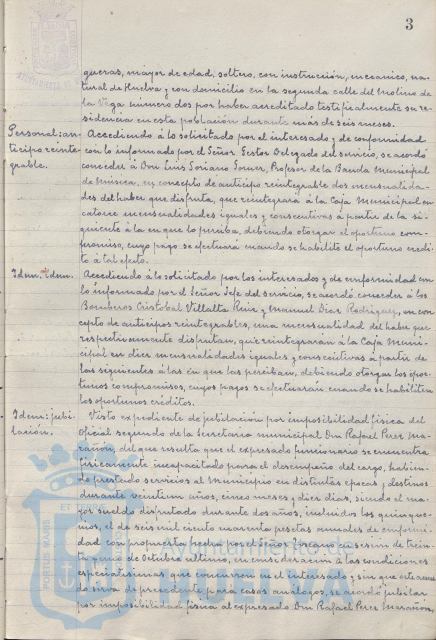 3
gueras, mayor de edad, soltero, con instrucción, mecánico, na-
tural de Huelva y con domicilio en la segunda calle del Molino de
la Vega número dos por haber acreditado testificalmente su re-
sidencia en esta población durante más de seis meses.
Personal: an-
ticipo reinte-
grable.
Accediendo á lo solicitado por el interesado y de conformidad
con lo informado por el Señor Gestor Delegado del servicio, se acordó
conceder á Don Luis Soriano Profesor de la Banda Municipal
de Música, en concepto de anticipo reintegrable dos mensualida-
des del haber que disfruta, que reintegrará á la Caja Municipal en
catorce mensualidades iguales y consecutivas á partir de la si-
guiente á la en que lo perciba, debiendo otorgar el oportuno com-
promiso, cuyo pago se efectuará cuando se habilite el oportuno crédi-
to á tal efecto.
Idem. Idem.
Accediendo á lo solicitado por los interesados y de conformidad con
lo informado por el Señor Jefe del servicio, se acordó conceder á los
Bomberos Cristobal Villalta Ruiz y Manuel Diaz Rodriguez, en con-
cepto de anticipos reintegrables, una mensualidad del haber que
respectivamente disfrutan, que reintegrarán á la Caja Muni-
cipal en diez mensualidades iguales y consecutivas á partir de
las siguientes á las en que las perciban, debiendo otorgar los opor-
tunos compromisos, cuyos pagos se efectuarán cuando se habiliten
los oportunos créditos.
Idem: jubi-
lación.
Visto expediente de jubilación por imposibilidad física del
Oficial segundo de la Secretaría municipal Don Rafael Perez Ma-
rañón, del que resulta que el expresado funcionario se encuentra
físicamente incapacitado para el desempeño del cargo, habien-
do prestado servicios al Municipio en distintas épocas y destinos
durante veintiun años, cinco meses y diez dias, siendo el ma-
yor sueldo disfrutado durante dos años, incluidos los quinque-
nios, el de seis mil ciento cuarenta pesetas anuales de conformi-
dad con propuesta hecha por el Señor Fiscano en sesión de trein-
ta y uno de Octubre último, en consideración á las condiciones
especialísimas que concurren en el interesado y sin que este acuer-
do sirva de precedente para casos análogos, se acordó jubilar
por imposibilidad física al expresado Don Rafael Perez Marañón,
Ayuntamiento de
PORTUS MARIS ET